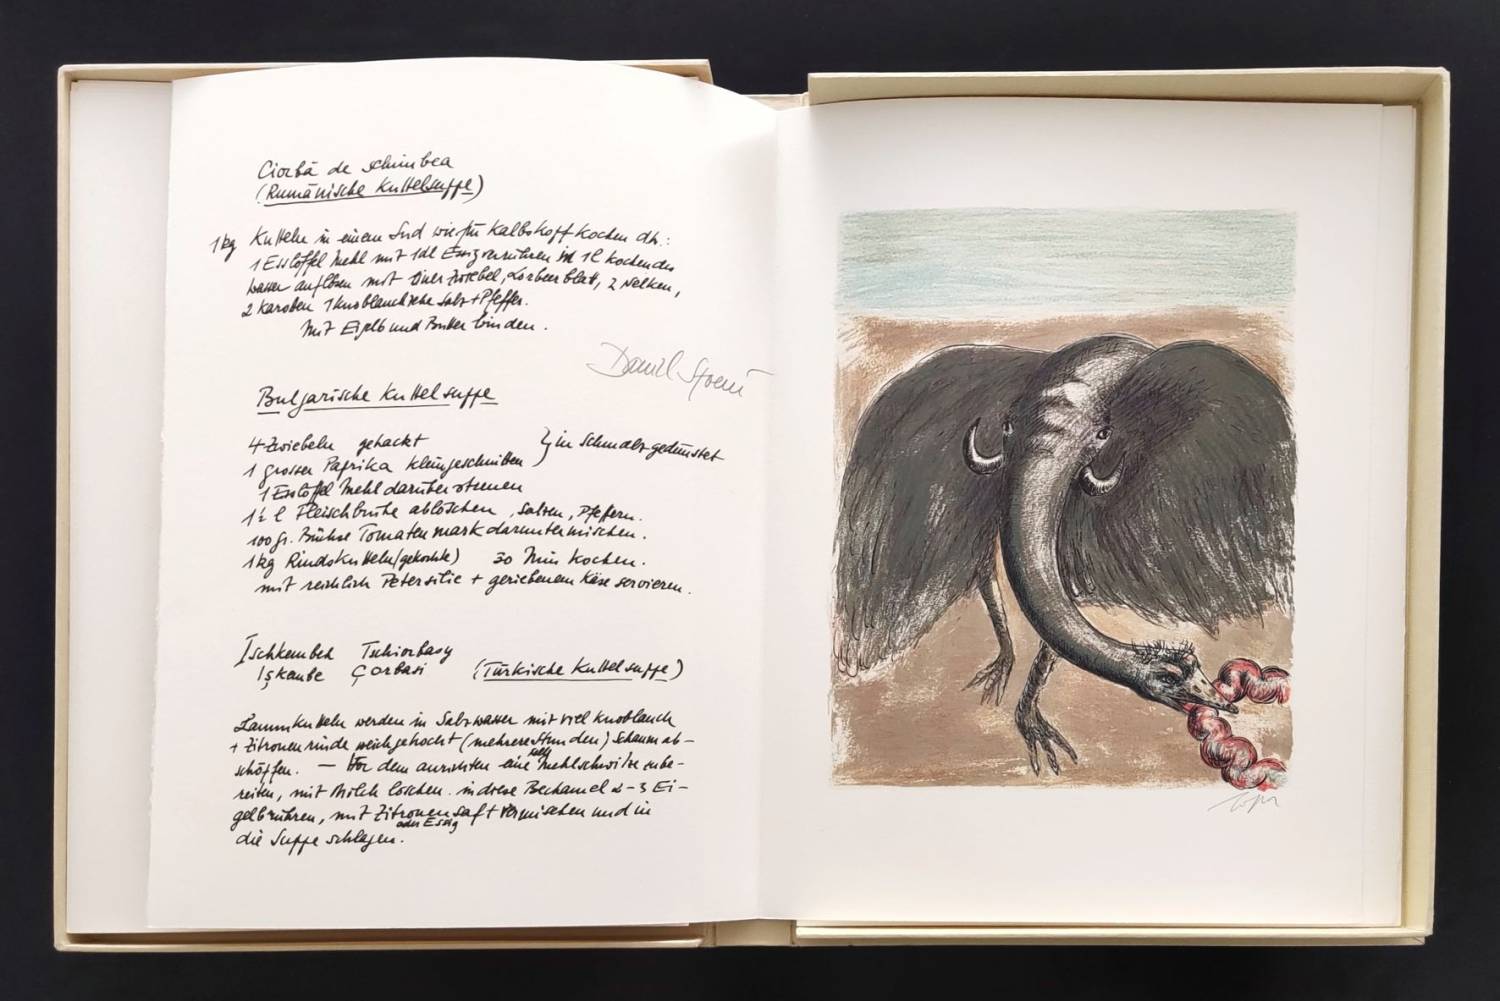 Ciorbă de schimbea
(Rumänische Kuttelsuppe)
1 kg Kutteln in einem Sud wie für Kalbskopf kochen dh.:
1 Esslöffel Mehl mit 1dl Essig verrühren in 1 l kochendes
Wasser auflösen mit einer Zwiebel, Lorbeerblatt, 2 Nelken,
2 Karotten 1 Knoblauchzehe Salz + Pfeffer.
Mit Eigelb und Butter binden.
Daniel Spoerri
Bulgarische Kuttelsuppe
4 Zwiebeln gehackt
1 grosser Paprika kleingeschnitten } in Schmalz gedünstet
1 Esslöffel Mehl darüber streuen
1½ l Fleischbrühe ablöschen, Salzen, Pfeffern.
100 gr. Büchse Tomatenmark daruntermischen.
1 kg Rindskutteln (gekochte) 30 Min kochen.
mit reichlich Petersilie + geriebenem Käse servieren.
Ischkembeh Tschiorbasy
Işkembe Çorbasi (Türkische Kuttelsuppe)
Lammkutteln werden in Salzwasser mit viel Knoblauch
+ Zitronenrinde weichgekocht (mehrere Stunden) Schaum ab-
schöpfen. — Vor dem anrichten eine Mehlschwitze zube-
reiten, mit Milch löschen. in diese Bechamel 2-3 Ei-
gelb rühren, mit Zitronensaft oder Essig vermischen und in
die Suppe schlagen.
Topor